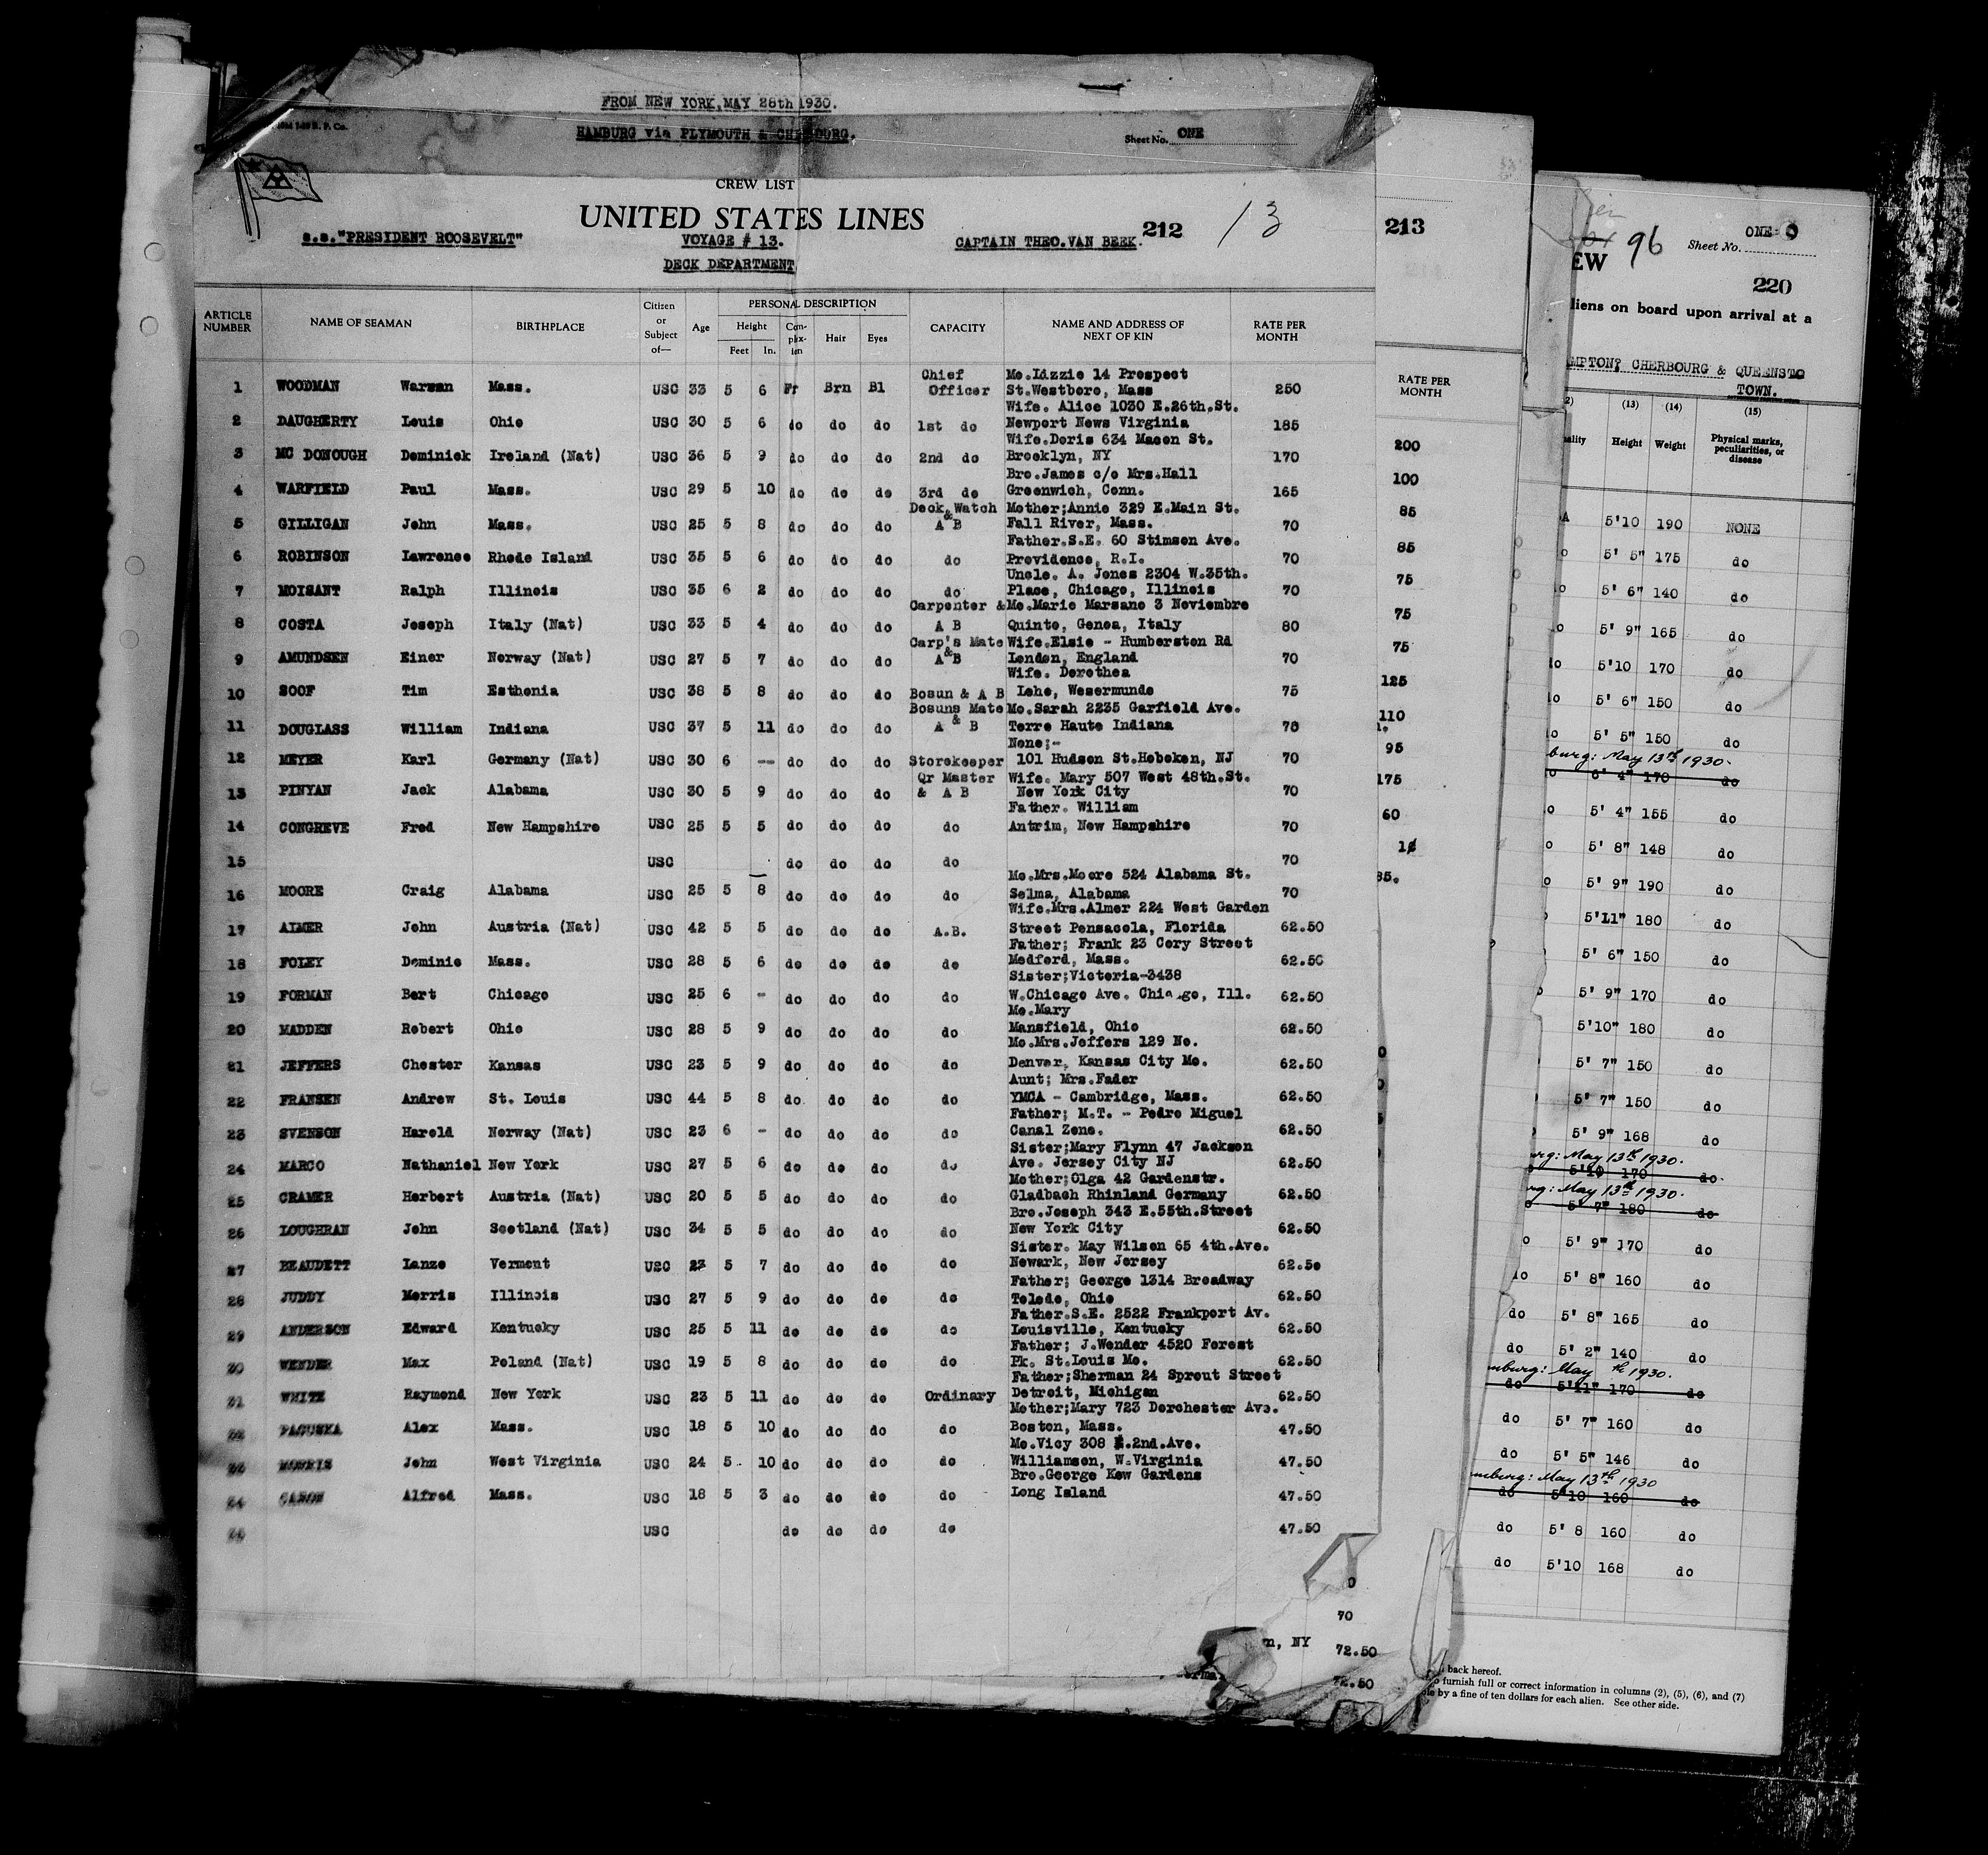 FROM NEW YORK, MAY 28th 1930.
HAMBURG via PLYMOUTH & CHERBOURG.
Sheet No. ONE
CREW LIST
UNITED STATES LINES
212 13
s.s."PRESIDENT ROOSEVELT" VOYAGE # 13. CAPTAIN THEO.VAN BEEK.
DECK DEPARTMENT
ARTICLE NUMBER NAME OF SEAMAN BIRTHPLACE Citizen or Subject of— Age PERSONAL DESCRIPTION Height Feet In. Complexion Hair Eyes CAPACITY NAME AND ADDRESS OF NEXT OF KIN RATE PER MONTH
Chief Mo.Lizzie 14 Prospect
1 WOODMAN Warman Mass. USC 33 5 6 Fr Brn Bl Officer St.Westboro, Mass 250
Wife. Alice 1030 E.26th.St.
2 DAUGHERTY Louis Ohio USC 30 5 6 do do do 1st do Newport News Virginia 185
Wife.Doris 634 Macon St.
3 MC DONOUGH Dominick Ireland (Nat) USC 36 5 9 do do do 2nd do Brooklyn, NY 170
Bro.James c/o Mrs.Hall
4 WARFIELD Paul Mass. USC 29 5 10 do do do 3rd do Greenwich, Conn. 165
Deck Watch Mother;Annie 329 E.Main St.
5 GILLIGAN John Mass. USC 25 5 8 do do do & A B Fall River, Mass. 70
Father.S.E. 60 Stimson Ave.
6 ROBINSON Lawrence Rhode Island USC 35 5 6 do do do do Providence, R.I. 70
Uncle. A. Jones 2304 W.35th.
7 MOISANT Ralph Illinois USC 35 6 2 do do do do Place, Chicago, Illinois 70
Carpenter & Mo.Marie Marsano 3 Noviembre
8 COSTA Joseph Italy (Nat) USC 33 5 4 do do do A B Quinto, Genoa, Italy 80
Carp's Mate Wife.Elsie - Humberston Rd
9 AMUNDSEN Einer Norway (Nat) USC 27 5 7 do do do & A B London, England 70
Wife. Dorothea
10 SOOF Tim Esthonia USC 38 5 8 do do do Bosun & A B Lehe, Wesermunde 75
Bosuns Mate Mo.Sarah 2235 Garfield Ave.
11 DOUGLASS William Indiana USC 37 5 11 do do do & A B Terre Haute Indiana 70
None;-
12 MEYER Karl Germany (Nat) USC 30 6 -- do do do Storekeeper 101 Hudson St.Hoboken, NJ 70
Qr Master Wife. Mary 507 West 48th.St.
13 PINYAN Jack Alabama USC 30 5 9 do do do & A B New York City 70
Father. William
14 CONGREVE Fred New Hampshire USC 25 5 5 do do do do Antrim, New Hampshire 70
15 USC do do do do 70
Mo.Mrs.Moore 524 Alabama St.
16 MOORE Craig Alabama USC 25 5 8 do do do do Selma, Alabama 70
Wife.Mrs.Almer 224 West Garden
17 ALMER John Austria (Nat) USC 42 5 5 do do do A.B. Street Pensacola, Florida 62.50
Father; Frank 23 Cory Street
18 FOLEY Dominic Mass. USC 28 5 6 do do do do Medford, Mass. 62.50
Sister;Victoria-3438
19 FORMAN Bert Chicago USC 25 6 - do do do do W.Chicago Ave. Chicago, Ill. 62.50
Mo.Mary
20 MADDEN Robert Ohio USC 28 5 9 do do do do Mansfield, Ohio 62.50
Mo.Mrs.Jeffers 129 No.
21 JEFFERS Chester Kansas USC 23 5 9 do do do do Denver, Kansas City Mo. 62.50
Aunt; Mrs.Fader
22 FRANSEN Andrew St. Louis USC 44 5 8 do do do do YMCA - Cambridge, Mass. 62.50
Father; M.T. - Pedro Miguel
23 SVENSON Harold Norway (Nat) USC 23 6 - do do do do Canal Zone. 62.50
Sister;Mary Flynn 47 Jackson
24 MARCO Nathaniel New York USC 27 5 6 do do do do Ave. Jersey City NJ 62.50
Mother;Olga 42 Gardenstr.
25 CRAMER Herbert Austria (Nat) USC 20 5 5 do do do do Gladbach Rhinland Germany 62.50
Bro.Joseph 343 E.55th.Street
26 LOUGHRAN John Scotland (Nat) USC 34 5 5 do do do do New York City 62.50
Sister. May Wilson 65 4th.Ave.
27 BEAUDETT Lanzo Vermont USC 23 5 7 do do do do Newark, New Jersey 62.50
Father; George 1314 Broadway
28 JUDDY Morris Illinois USC 27 5 9 do do do do Toledo, Ohio 62.50
Father.S.E. 2522 Frankport Av.
29 ANDERSON Edward Kentucky USC 25 5 11 do do do do Louisville, Kentucky 62.50
Father; J.Wender 4520 Forest
30 WENDER Max Poland (Nat) USC 19 5 8 do do do do Pk. St.Louis Mo. 62.50
Father;Sherman 24 Sprout Street
31 WHITE Raymond New York USC 23 5 11 do do do Ordinary Detroit, Michigan 62.50
Mother;Mary 723 Dorchester Ave.
32 Alex Mass. USC 18 5 10 do do do do Boston, Mass. 47.50
Mo.Vicy 308 E.2nd.Ave.
33 MORRIS John West Virginia USC 24 5 10 do do do do Williamson, W.Virginia 47.50
Bro.George Kew Gardens
34 CARON Alfred Mass. USC 18 5 3 do do do do Long Island 47.50
USC do do do do 47.50
70
n, NY 72.50
72.50
213
RATE PER MONTH
200
100
85
85
75
75
75
125
110
95
175
60
85.
EW 96 Sheet No. ONE
220
liens on board upon arrival at a
MPTON; CHERBOURG & QUEENSTO
TOWN.
(13) (14) (15)
Height Weight Physical marks, peculiarities, or disease
5'10 190 NONE
5' 5" 175 do
5' 6" 140 do
5' 9" 165 do
5'10 170 do
5' 6" 150 do
5' 5" 150 do
burg: May 13th 1930.
6' 4" 170 do
5' 4" 155 do
5' 8" 148 do
5' 9" 190 do
5'11" 180 do
5' 6" 150 do
5' 9" 170 do
5'10" 180 do
5' 7" 150 do
5' 7" 150 do
5' 9" 168 do
urg: May 13th 1930.
5'10 170 do
urg: May 13th 1930.
5' 7" 180 do
5' 9" 170 do
5' 8" 160 do
do 5' 8" 165 do
do 5' 2" 140 do
mburg: May th 1930.
do 5'11" 170 do
do 5' 7" 160 do
do 5' 5" 146 do
mburg: May 13th 1930
do 5'10 160 do
do 5' 8 160 do
do 5'10 168 do
back hereof.
o furnish full or correct information in columns (2), (5), (6), and (7)
le by a fine of ten dollars for each alien. See other side.